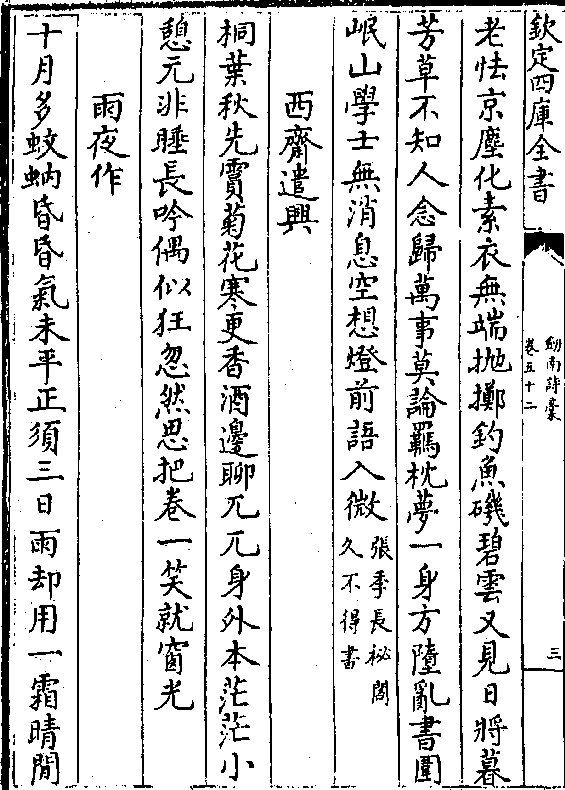 欽定四庫全書
劒南詩槀
卷五十二
三
老怯京塵化素衣無端抛擲釣魚磯碧雲又見日將暮
芳草不知人念歸萬事莫論羈枕夢一身方墮亂書圍
岷山學士無消息空想燈前語入微張季長秘閣
久不得書
西齋遣興
桐葉秋先霣菊花寒更香酒邊聊兀兀身外本茫茫小
憩元非睡長吟偶似狂忽然思把卷一笑就窗光
雨夜作
十月多蚊蚋昏昏氣未平正須三日雨却用一霜晴閒